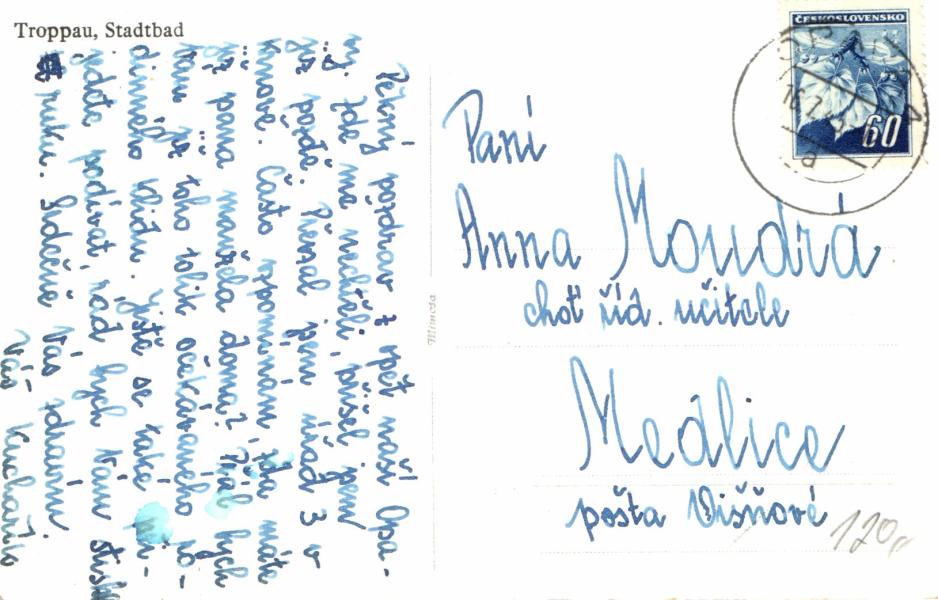 Troppau, Stadtbad
Pěkný pozdrav z opět naší Opa-
vy. Zde mě nechtěli, přišel jsem
již pozdě. Převzal jsem úřad 3 v
Krnově. Často vzpomínám, zda máte
již pana manžela doma? Přál bych
Vám již toho tolik očekávaného ro-
dinného klidu. Jistě se také při-
jdete podívat, rád bych Vám stiskl
ruku. Srdečně Vás zdraví
Váš Kuchařík
Mimosa
ČESKOSLOVENSKO
60
a
Paní
Anna Moudrá
choť říd. učitele
Medlice
pošta Višňové
120,-